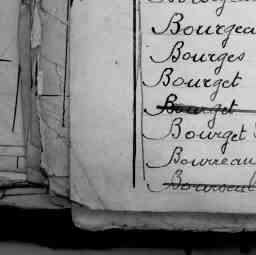 Bourgea
Bourges
Bourget
Bourget
Bourget
Bourreau